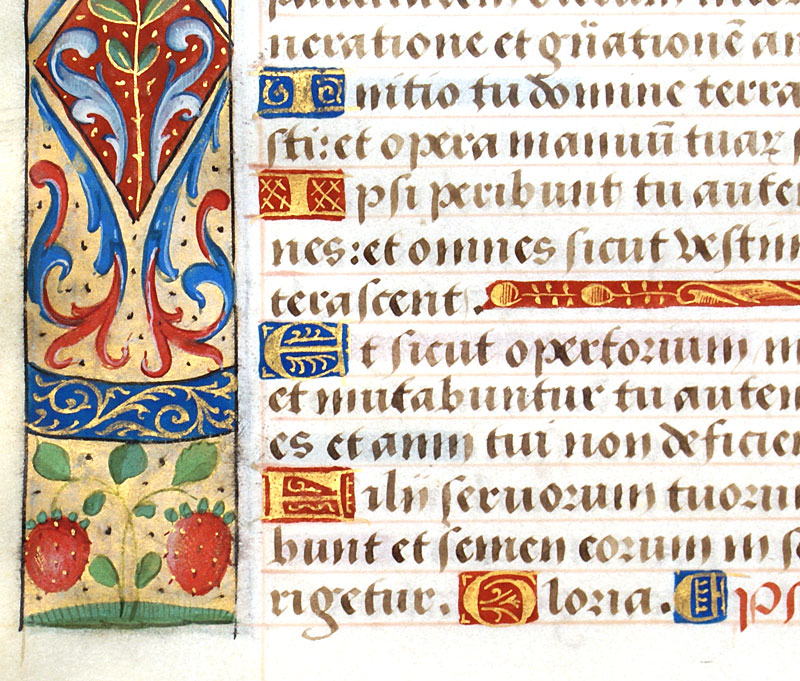 neratione et gn̄ationē an
Initio tu domine terra
sti: et opera manuū tuaꝝ s
Ipsi peribunt tu aute
nes: et omnes sicut vestim
terascent.
Et sicut opertorium m
et mutabuntur tu autem
es et anni tui non deficien
Filii seruorum tuoru
bunt et semen eorum in s
rigetur. Gloria. E ps